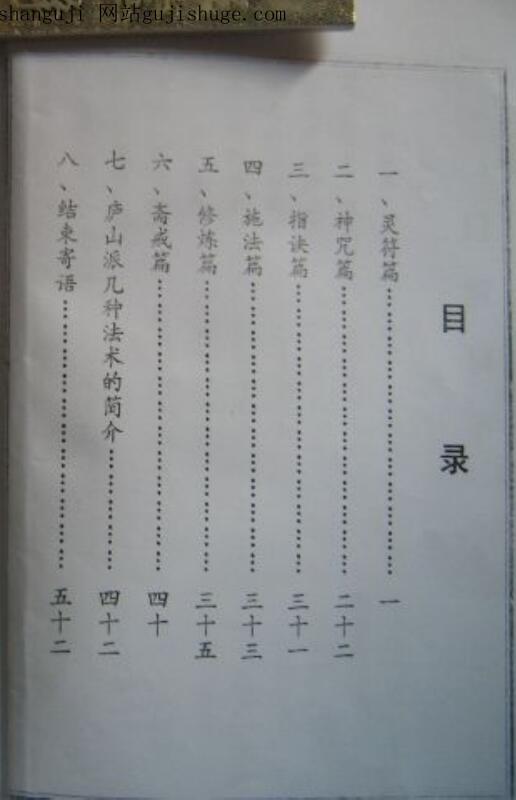 shanguji 网站gujishuge.com
目录
一、灵符篇……………………一
二、神咒篇……………………二十二
三、指诀篇……………………三十一
四、施法篇……………………三十三
五、修炼篇……………………三十五
六、斋戒篇……………………四十
七、庐山派几种法术的简介…………四十二
八、结束寄语……………………五十二